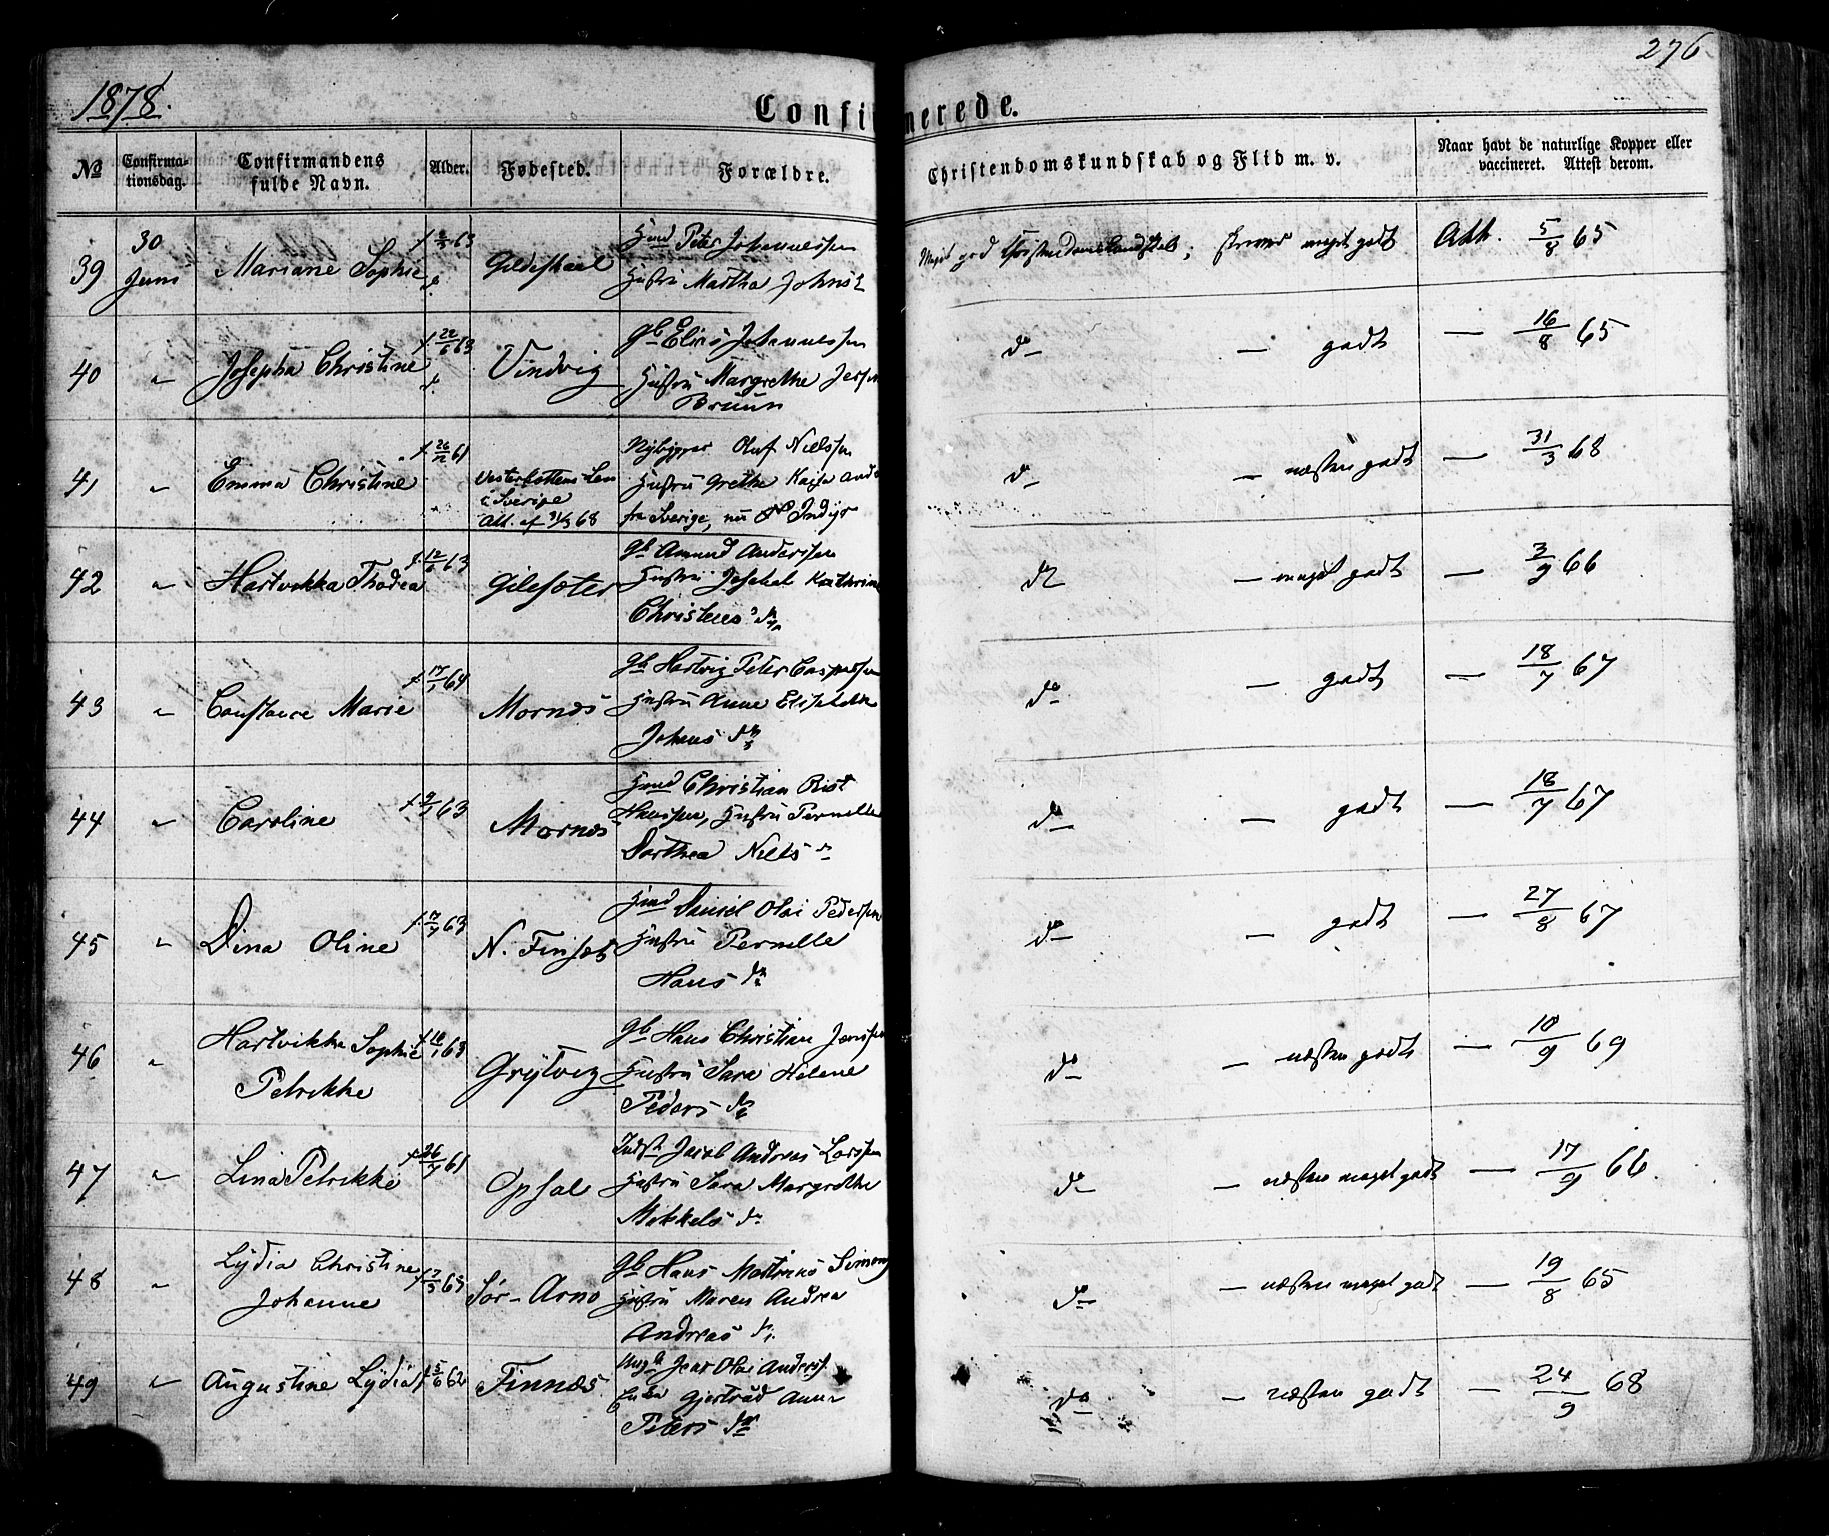 276
1878.
Confirmerede.
No
Confirma-
tionsdag.
Confirmandens
fulde Navn.
Alder.
Fødested.
Forældre.
Christendomskundskab og Flid m. v.
Naar havt de naturlige Kopper eller
vaccineret. Attest derom.
39
30
Juni
Mariane Sophie
63
Gildeskaal
Peter Johannessen
Hustru Martha Johns
Meget god Christendomskundskab; meget godt
Atth. 5/8 65
40 "
Josepha Christine
f 22/6 63
Vindvig
Elias Johannessen
Hustru Margrethe Jesp
Bruun
do — godt — 16/8 65
41 "
Emma Christine
f 26/12 61
Vesterbottens Len
i Sverige
Att. af 31/3 68
Nybygger Oluf Nielssen
Hustru Grethe Kajsa And
fra Sverige, nu Indyr
do — næsten godt — 31/3 68
42 "
Hartvikka Thodea
f 12/6 63
Gilesæter
Gb Amund Anderssen
Hustru Josephat Kathrine
Christens dr
do — meget godt — 3/9 66
43 "
Constance Marie
f 17/1 64
Mornes
Gb Hartvig Peter Casperssen
Hustru Anne Elisabeth
Johans dr
do — godt — 18/7 67
44 "
Caroline
63
Mornes
Christian Rist
Hanssen, Hustru Pernelle
Dorthea Niels dr
do — godt — 18/7 67
45 "
Dina Oline
63
N. Finset
Daniel Olai Pederssen
Hustru Pernelle
Hans dr
do — godt — 27/8 67
46 "
Hartvikke Sophie
Petrikke
63
Grytvig
Gb Hans Christian Jenssen
Hustru Sara Helene
Peders dr
do — næsten godt — 10/9 69
47 "
Lina Petrikke
f 26/7 61
Opsal
Inds Jacob Andreas Larssen
Hustru Sara Margrethe
Mikkels dr
do — næsten meget godt — 17/9 66.
48 "
Lydia Christine
Johanne
63
Sør-Arnø
Gb Hans Martinus Simons
Hustru Maren Andrea
Andreas dr
do — næsten meget godt — 19/8 65
49 "
Augustine Lydia
f 5/6 62
Finnæs
Jens Olai Anderss.
Gjertrud Anna
Peters dr
do — næsten godt — 24/9 68